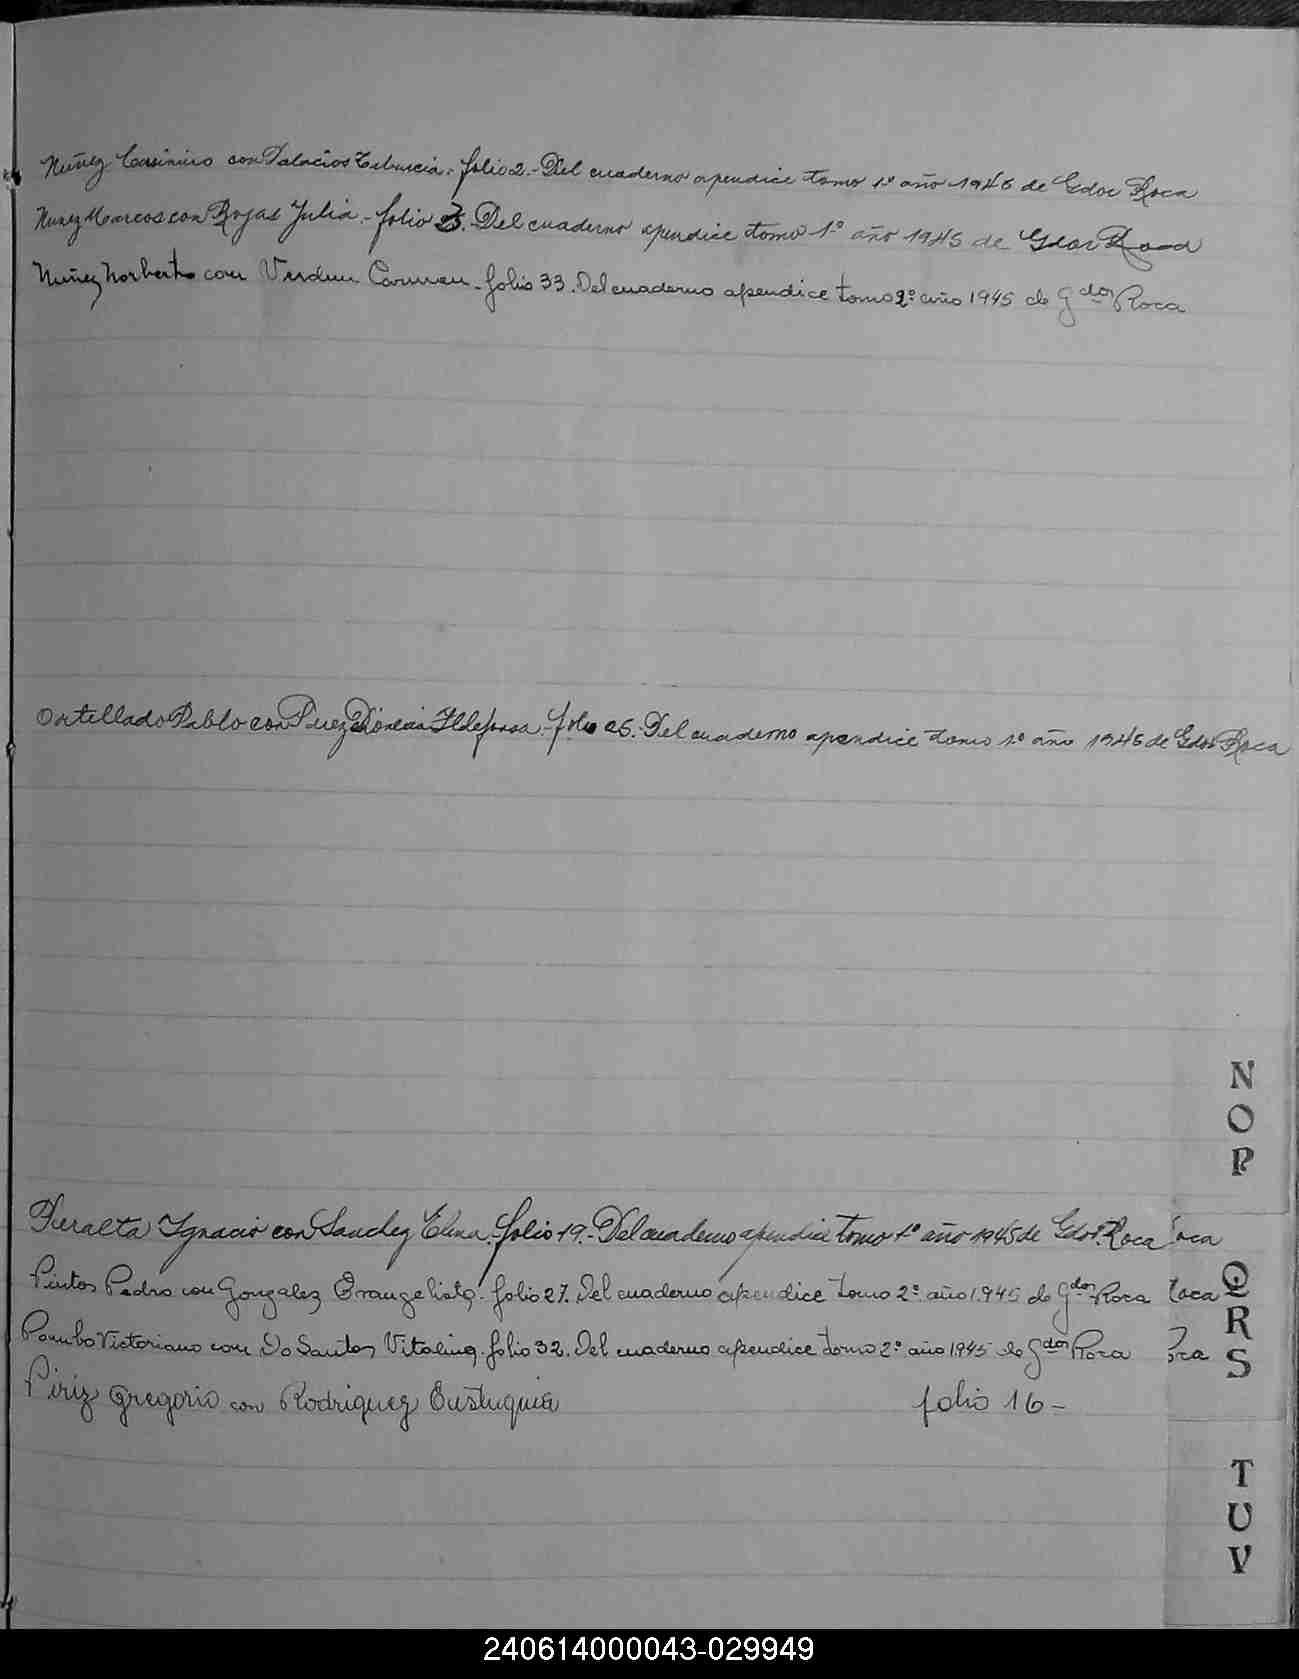 Nuñez Casimiro con Palacios Tiburcia.- folio 2.- Del cuaderno apendice tomo 1º año 1945 de Gdor Roca
Nunez Marcos con Rojas Julia.- folio 5.- Del cuaderno apendice tomo 1º año 1945 de Gdor Roca
Nuñez Norberto con Verdun Carmen - folio 33. Del cuaderno apendice tomo 2º año 1945 de Gdor Roca
Ortellado Pablo con Ildefonsa.- folio 25.- Del cuaderno apendice tomo 1º año 1945 de Gdor Roca
N
O
P
Peralta Ignacio con Sanchez Elena. folio 19.- Del cuaderno apendice tomo 1º año 1945 de Gdor. Roca oca
Pintos Pedro con Gonzalez Evangelista. folio 27. Del cuaderno apendice tomo 2º año 1945 de Gdor Roca Roca
Pombo Victoriano con Do Santos Vitalina. folio 32. Del cuaderno apendice tomo 2º año 1945 de Gdor Roca oca
Piriz Gregorio con Rodriguez Eustuquia folio 16 -
Q
R
S
T
U
V
240614000043-029949